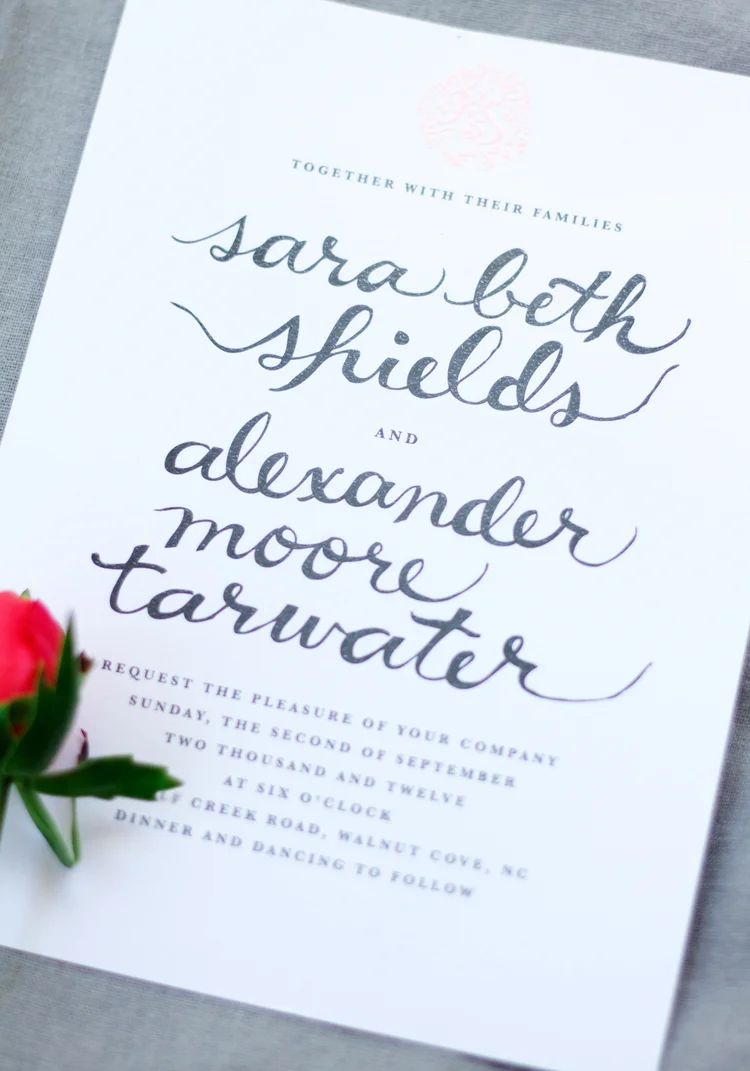 TOGETHER WITH THEIR FAMILIES
sara beth
shields
AND
alexander
moore
tarwater
REQUEST THE PLEASURE OF YOUR COMPANY
SUNDAY, THE SECOND OF SEPTEMBER
TWO THOUSAND AND TWELVE
AT SIX O'CLOCK
CREEK ROAD, WALNUT COVE, NC
DINNER AND DANCING TO FOLLOW